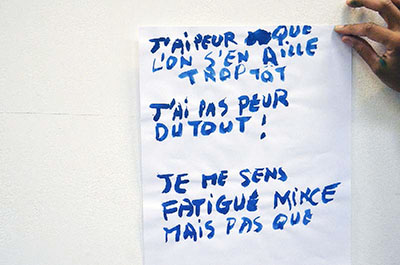 J'AI PEUR QUE
L'ON S'EN AILLE
TROP TÔT
J'AI PAS PEUR
DU TOUT !
JE ME SENS
FATIGUÉ MINCE
MAIS PAS QUE